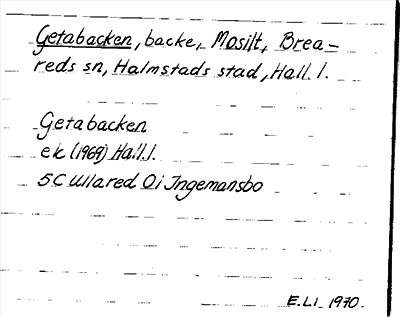 Getabacken, backe, Mosilt, Brea-
reds sn, Halmstads stad, Hall. l.
Getabacken
ek (1969) Hall.l.
5C Ullared 0i Ingemansbo
E.Li. 1970.